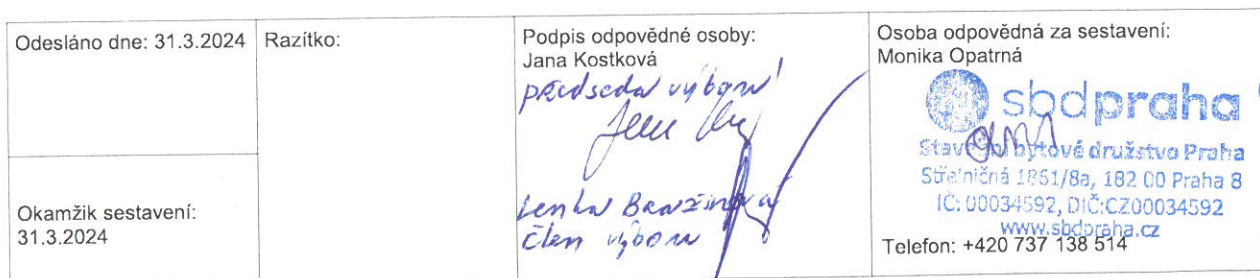 Odesláno dne: 31.3.2024
Okamžik sestavení:
31.3.2024
Razítko:
Podpis odpovědné osoby:
Jana Kostková
předseda výboru
Lenka
člen výboru
Osoba odpovědná za sestavení:
Monika Opatrná
sbdpraha
Stavební bytové družstvo Praha
Střelničná 1861/8a, 182 00 Praha 8
IČ: 00034592, DIČ:CZ00034592
www.sbdpraha.cz
Telefon: +420 737 138 514